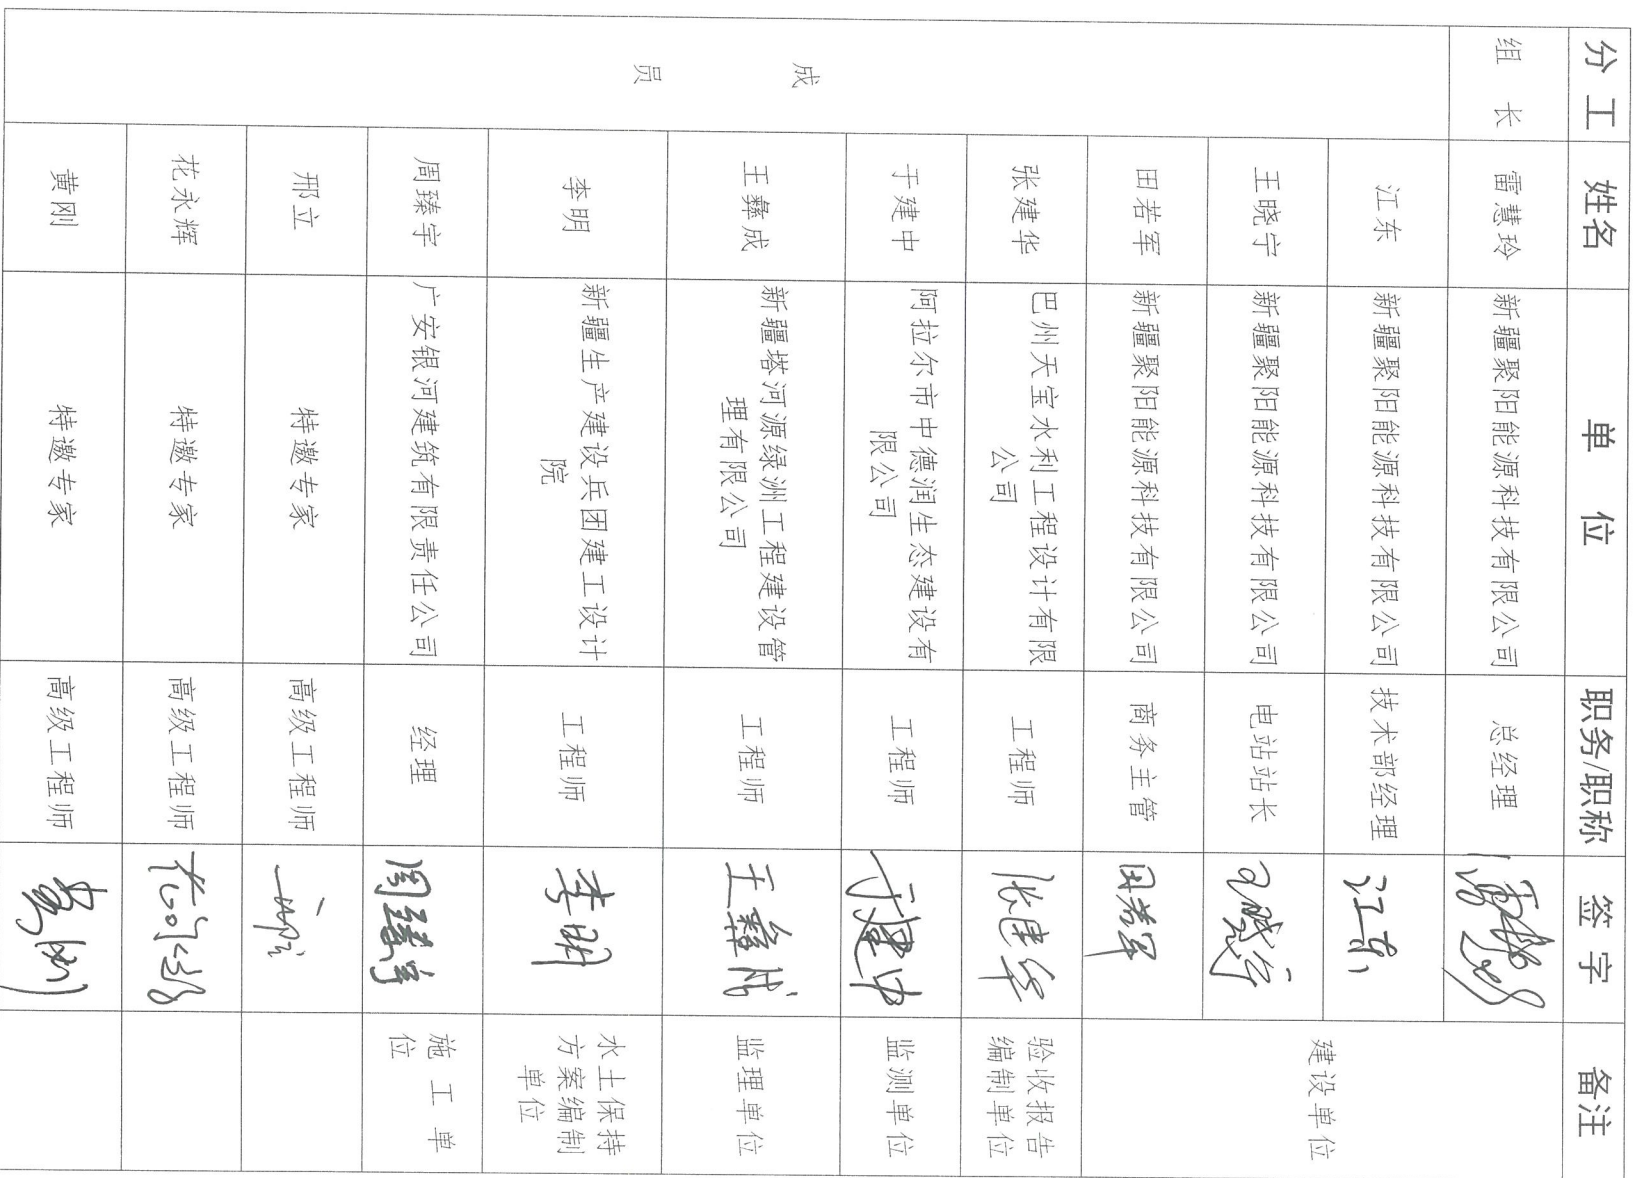 分 工 姓名 单 位 职务/职称 签 字 备注
组 长 雷慧玲 新疆聚阳能源科技有限公司 总经理
建设单位
成 员
江东 新疆聚阳能源科技有限公司 技术部经理 江东
王晓宁 新疆聚阳能源科技有限公司 电站站长 王晓宁
田若军 新疆聚阳能源科技有限公司 商务主管 田若军
张建华 巴州天宝水利工程设计有限
公司
工程师 张建华 验收报告
编制单位
于建中 阿拉尔市中德润生态建设有
限公司
工程师 于建中 监测单位
王彝成 新疆塔河源绿洲工程建设管
理有限公司
工程师 王彝成 监理单位
李明 新疆生产建设兵团建工设计
院
工程师 李明 水土保持
方案编制
单位
周臻宇 广安银河建筑有限责任公司 经理 周臻宇 施 工 单
位
邢立 特邀专家 高级工程师
花永辉 特邀专家 高级工程师 花永辉
黄刚 特邀专家 高级工程师 黄刚